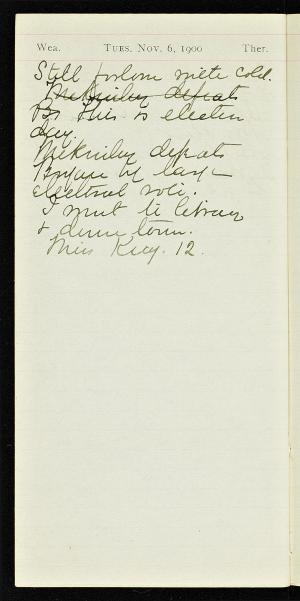 Wea. Tues. Nov. 6, 1900 Ther.
Still forlorn with cold.
McKinley defeats
This is election
day.
McKinley defeats
Bryan by large
electoral vote.
I went to library
& down town.
Miss King. 12.